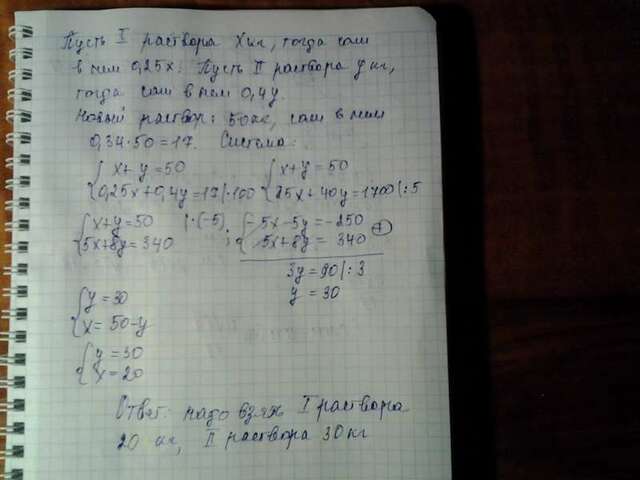 Пусть I раствора x кг, тогда соли
в нем 0,25x. Пусть II раствора y кг,
тогда соли в нем 0,4y.
Новый раствор: 50кг, соли в нем
0,34·50=17. Система:
{x+y=50 {x+y=50
0,25x+0,4y=17|·100 25x+40y=1700|:5
{x+y=50 |·(-5) ; {-5x-5y=-250
5x+8y=340 5x+8y=340 (+)
3y=90|:3
y=30
{y=30
x=50-y
{y=30
x=20
Ответ: надо взять I раствора
20 кг, II раствора 30кг